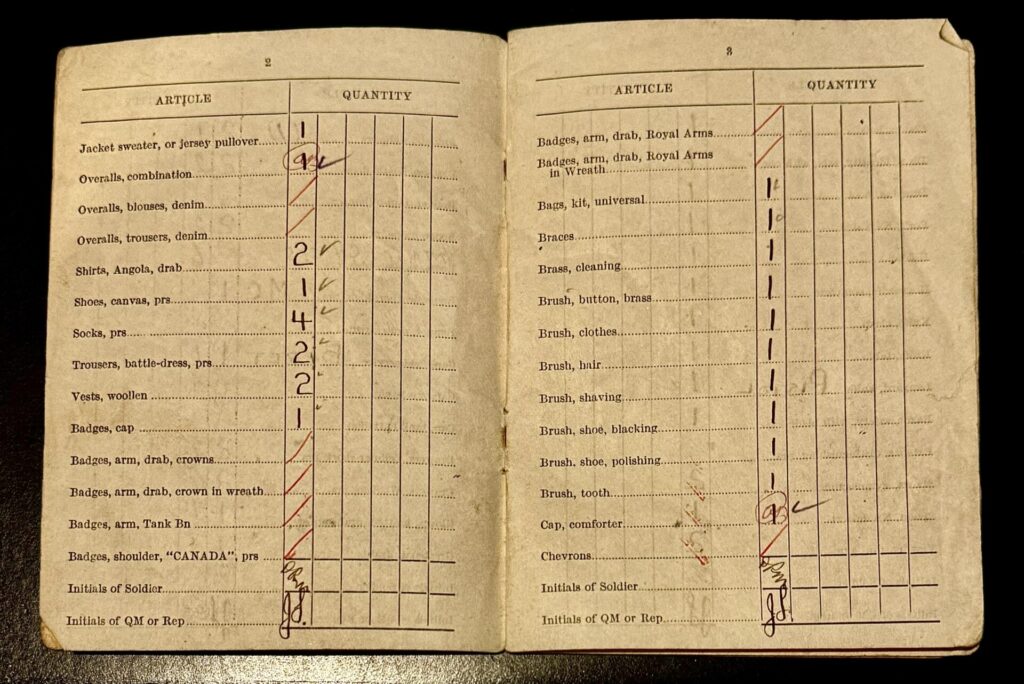 2
ARTICLE QUANTITY
Jacket sweater, or jersey pullover 1
Overalls, combination 1 ✓
Overalls, blouses, denim /
Overalls, trousers, denim /
Shirts, Angola, drab 2 ✓
Shoes, canvas, prs 1 ✓
Socks, prs 4 ✓
Trousers, battle-dress, prs 2
Vests, woollen 2
Badges, cap 1
Badges, arm, drab, crowns /
Badges, arm, drab, crown in wreath /
Badges, arm, Tank Bn /
Badges, shoulder, "CANADA", prs /
Initials of Soldier
Initials of QM or Rep
3
ARTICLE QUANTITY
Badges, arm, drab, Royal Arms /
Badges, arm, drab, Royal Arms
in Wreath /
Bags, kit, universal 1
Braces 1
Brass, cleaning 1
Brush, button, brass 1
Brush, clothes 1
Brush, hair 1
Brush, shaving 1
Brush, shoe, blacking 1
Brush, shoe, polishing 1
Brush, tooth 1
Cap, comforter 1 ✓
Chevrons /
Initials of Soldier
Initials of QM or Rep